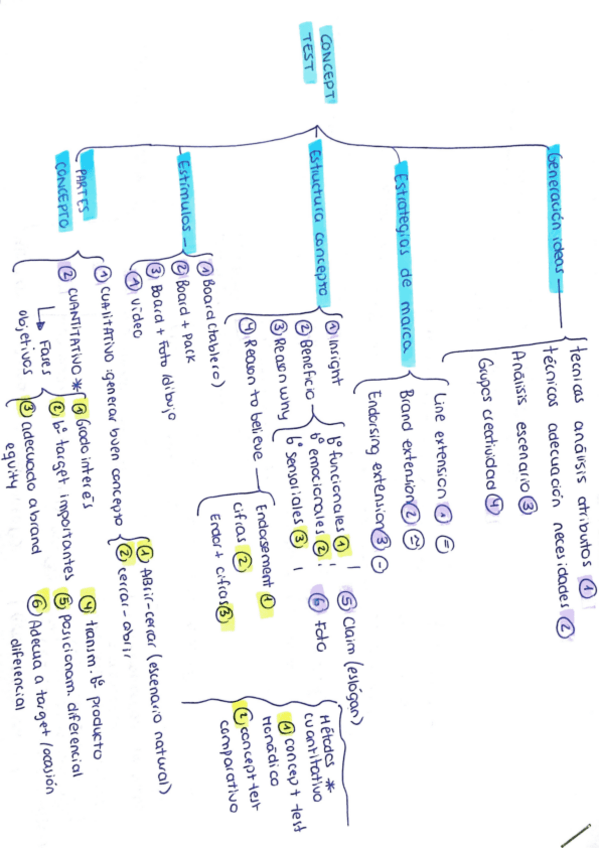 CONCEPT
TEST
Generación ideas
tecnicas análisis atributos ①
técnicas adecuación necesidades ②
Análisis escenario ③
Grupos creatividad ④
Estrategias de marca
Line extension ① =
Brand extension ② ≃
Endorsing extension ③ -
Estructura concepto
① Insight
② Beneficio
bº funcionales ① !
bº emocionales ② !
bº sensoriales ③ !
③ Reason why
④ Reason to believe
Endorsement ①
cifras ②
Endor + cifras ③
⑤ Claim (eslógan)
⑥ Foto
Estímulos
① Board (tablero)
② Board + Pack
③ Board + Foto/dibujo
④ Video
PARTES
CONCEPTO
① CUALITATIVO: generar buen concepto
① ABrir-cerrar (escenario natural)
② cerrar-abrir
② CUANTITATIVO *
Fases
objetivos
① Grado interés
② bº target importantes
③ adecuado a brand
equity
④ transm. bº producto
⑤ posicionam. diferencial
⑥ Adecua a target/ocasión
diferencial
Métodos *
cuantitativo
① concept test
monádico
② concept test
comparativo